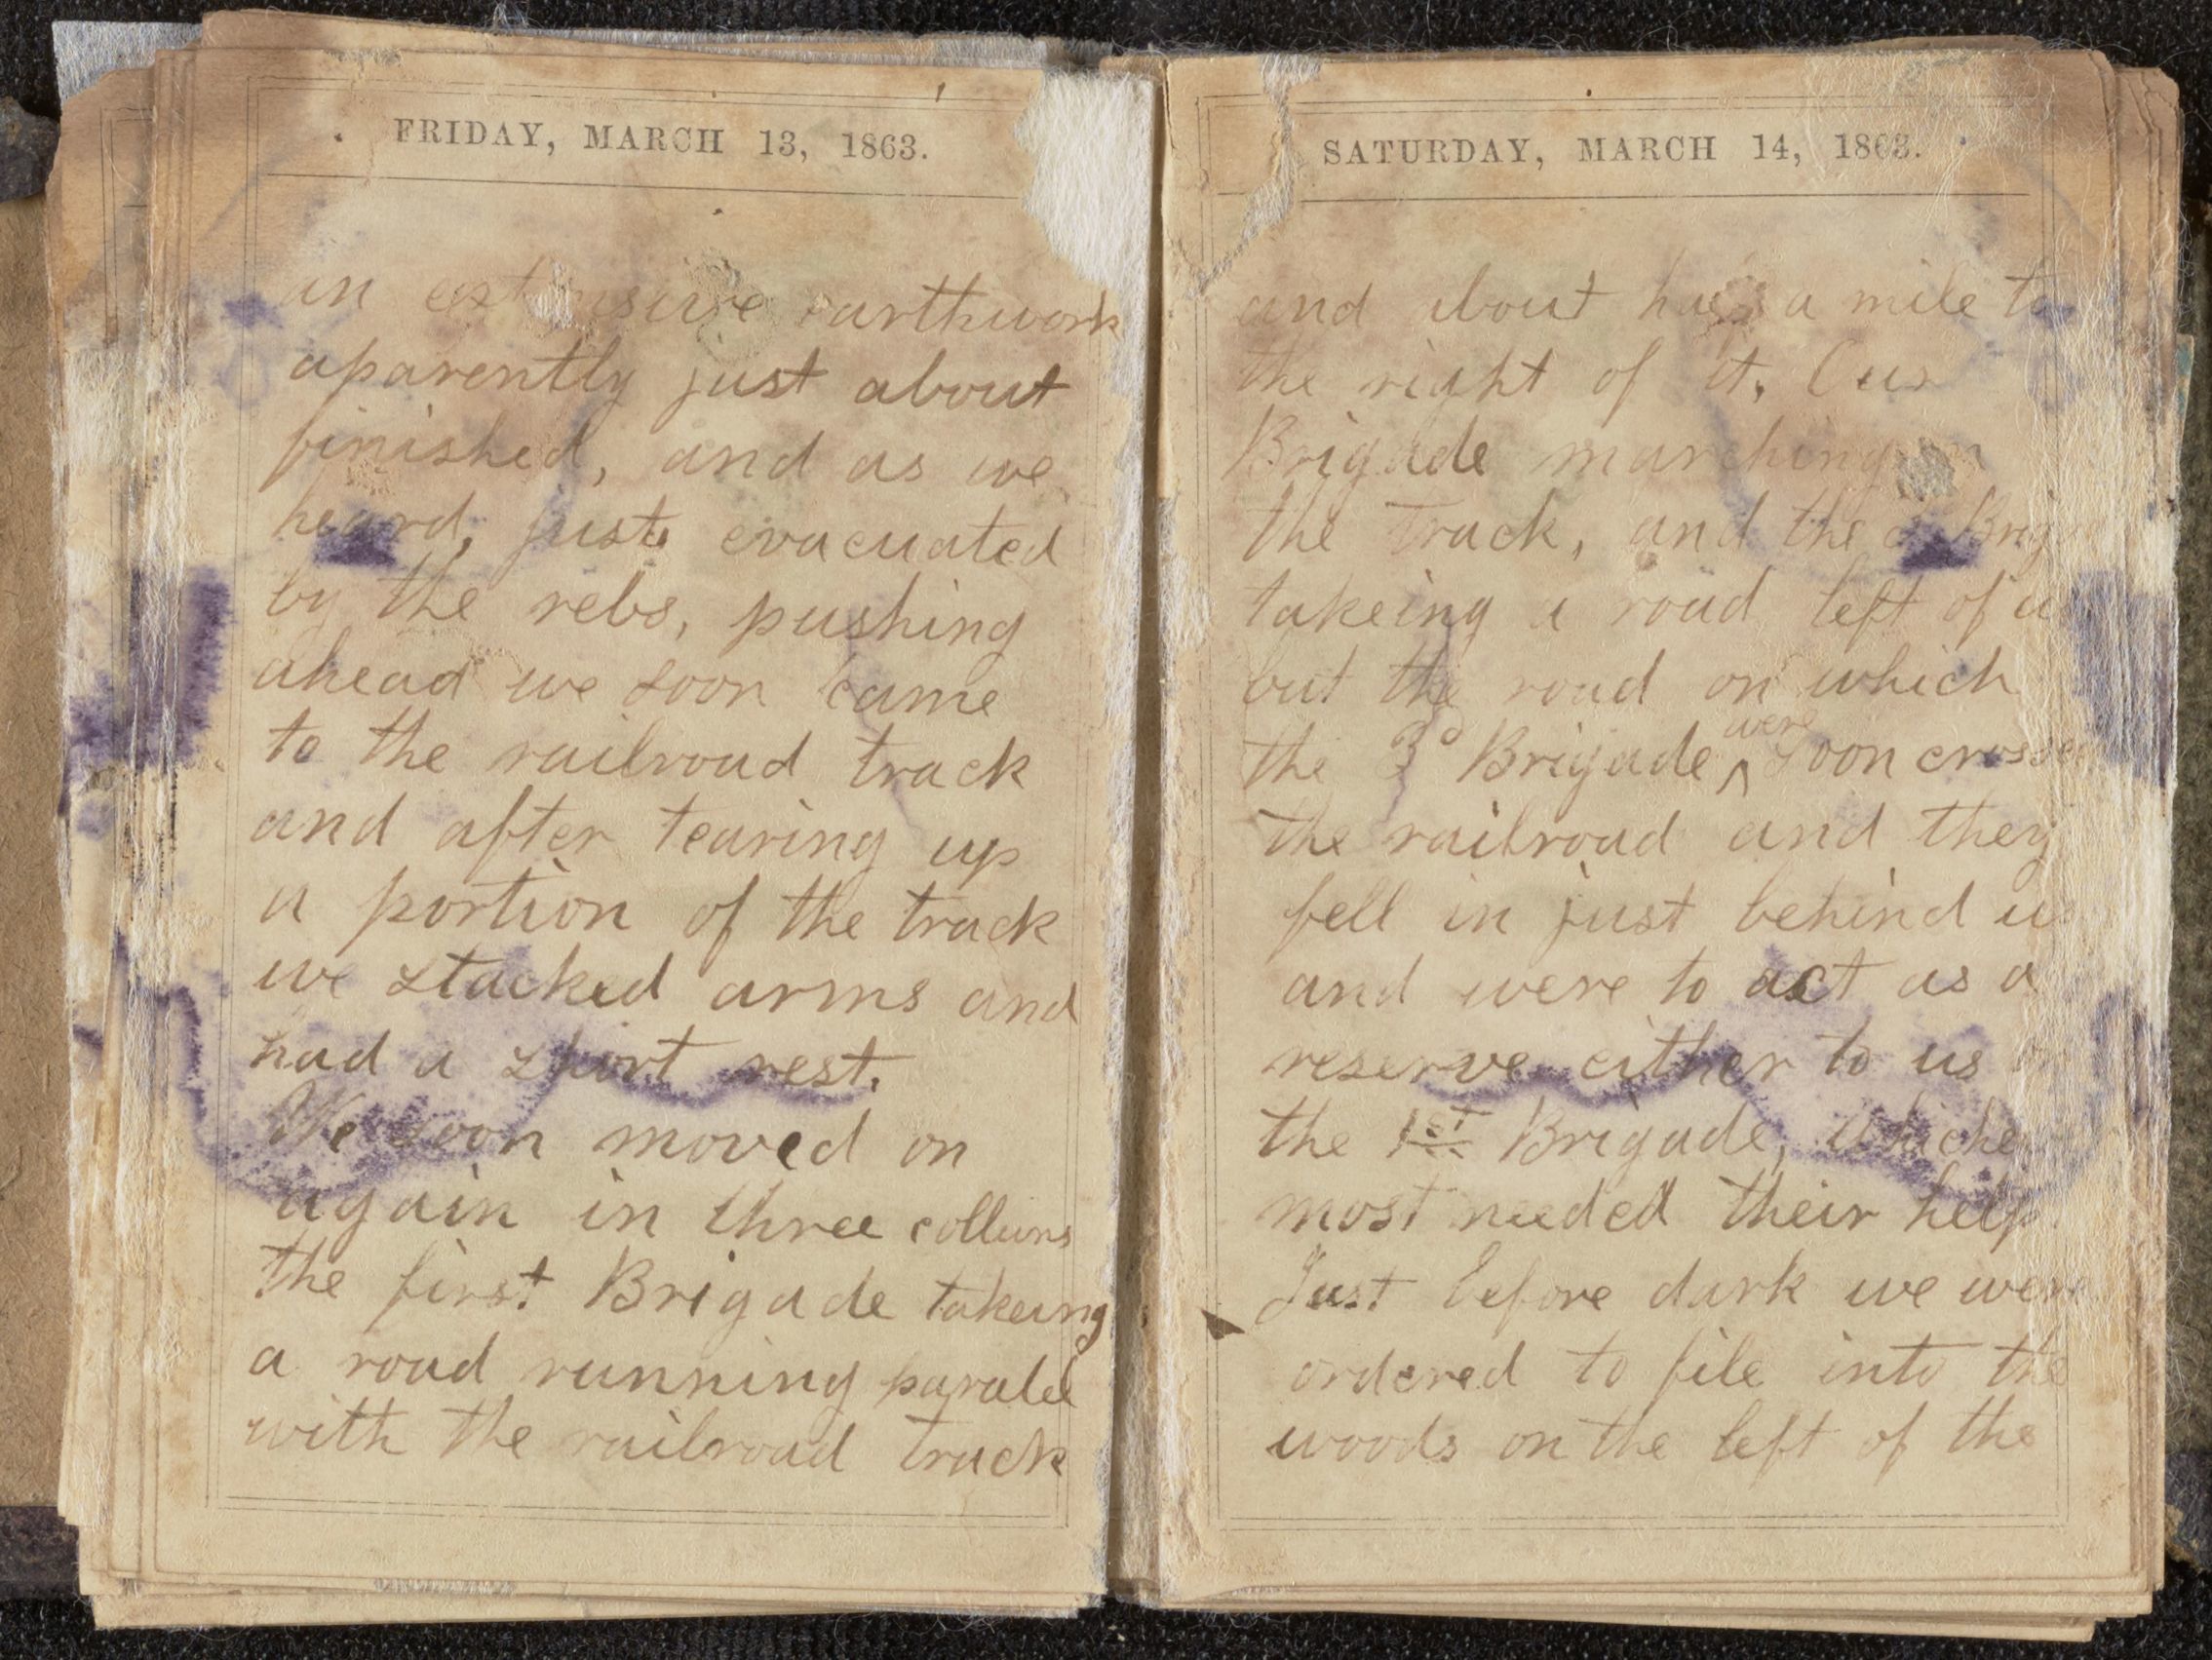 FRIDAY, MARCH 13, 1863.
an extensive earthwork
aparently just about
finished, and as we
heard, just evacuated
by the rebs, pushing
ahead we soon came
to the railroad track
and after tearing up
a portion of the track
we stacked arms and
had a short rest.
We soon moved on
again in three collums
the first Brigade takeing
a road running paralel
with the railroad track
SATURDAY, MARCH 14, 1863.
and about half a mile to
the right of it. Our
Brigade marching on
the track, and the Brig
takeing a road left of
but the road on which
the 3d Brigade were soon crossed
the railroad and they
fell in just behind us
and were to act as a
reserve either to us or
the 1st Brigade, whichever
most needed their help
Just before dark we were
ordered to file into the
woods on the left of the